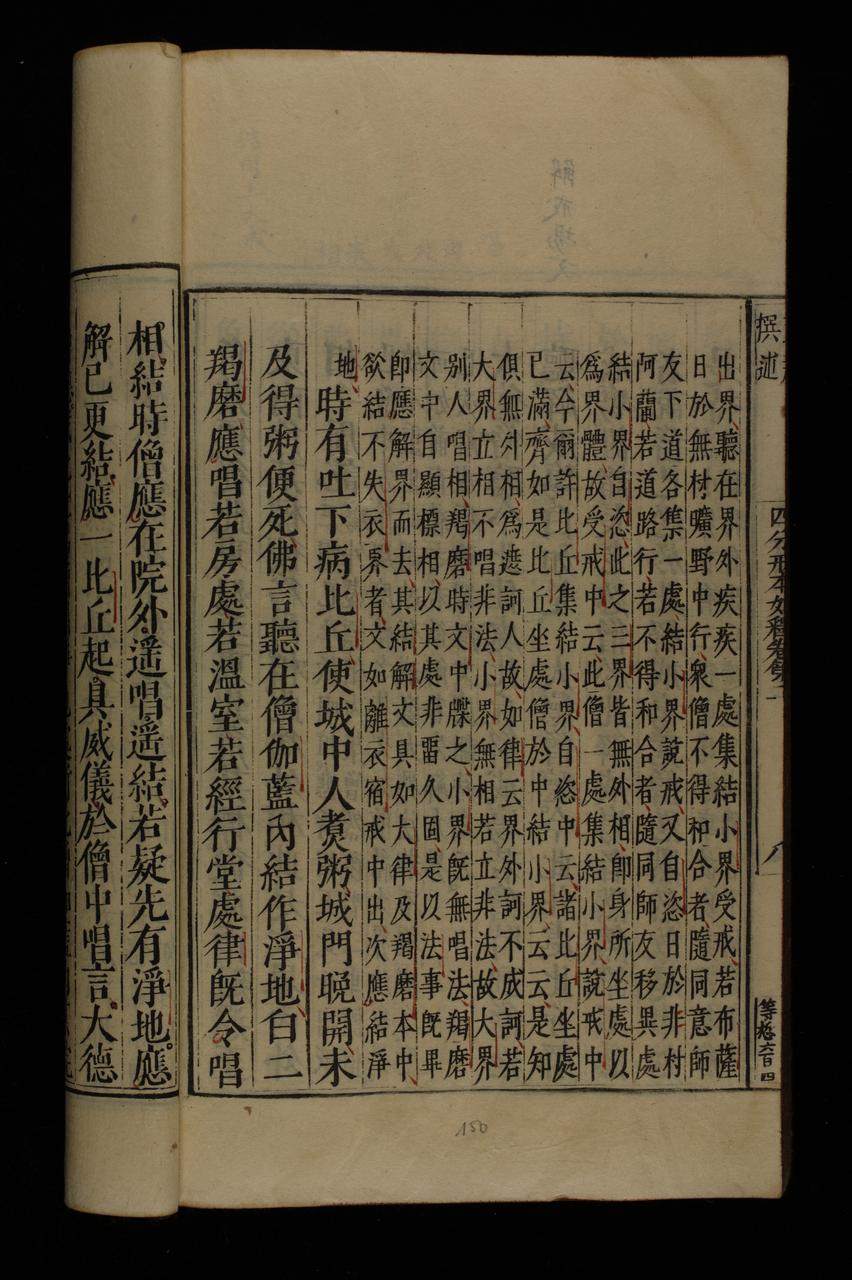 撰述
四分戒本如釋卷第一
出界、聽在界外疾疾一處集結小界受戒、若布薩
日於無村曠野中行、衆僧不得和合者、隨同意師
友下道各集一處結小界說戒、又自恣日於非村
阿蘭若道路行、若不得和合者、隨同師友移異處
結小界自恣、此之三界皆無外相、卽身所坐處以
爲界體、故受戒中云此僧一處集結小界、說戒中
云、今爾許比丘集結小界、自恣中云、諸比丘坐處
已滿、齊如是比丘坐處僧於中結小界、云云、是知
俱無外相、爲遮訶人故、如律云界外訶不成訶、若
大界立相不唱非法、小界無相若立非法、故大界
別人唱相、羯磨時文中牒之、小界旣無唱法、羯磨
文中自顯標相、以其處非畱久固、是以法事旣畢
卽應解界而去、其結解文具如大律及羯磨本中、
欲結不失衣界者、文如離衣宿戒中出、次應結淨
地、
時有吐下病比丘、使城中人煑粥、城門晚開、未
及得粥便死、佛言聽在僧伽藍內結作淨地、白二
羯磨、應唱若房處若溫室若經行堂處、律旣令唱
相、結時僧應在院外遥唱遥結、若疑先有淨地。應
解已更結、應一比丘起、具威儀、於僧中唱言、大德
150